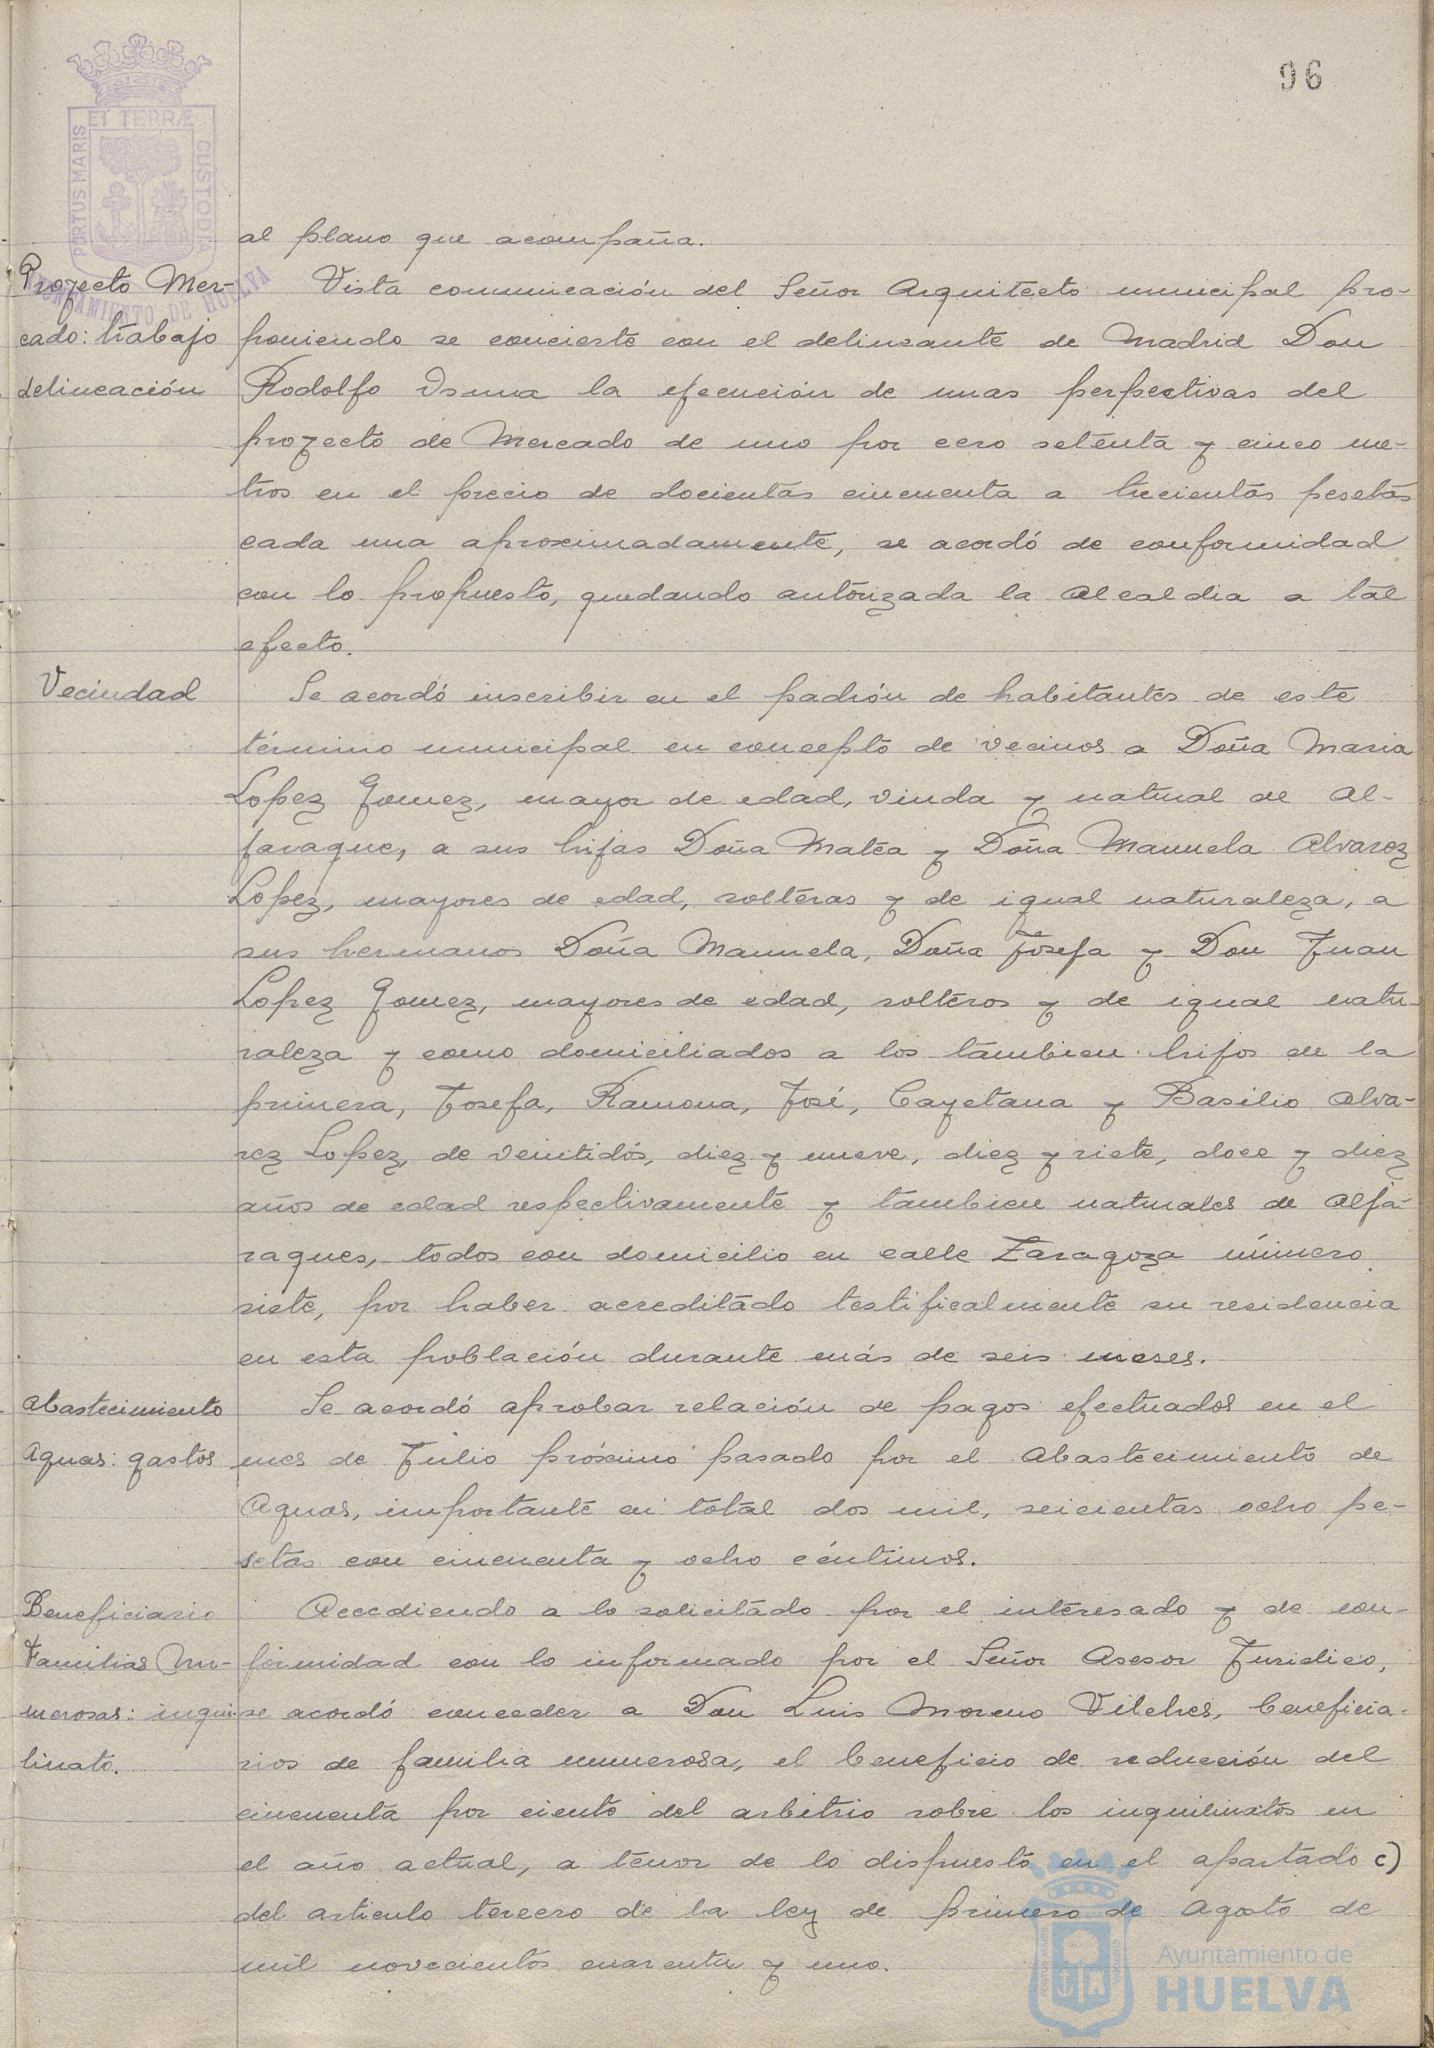 96
PORTUS MARIS ET TERRÆ CUSTODIA
AYUNTAMIENTO DE HUELVA
al plano que acompaña.
Proyecto Mer-
cado: trabajo
delineación
Vista comunicación del Señor Arquitecto municipal pro-
poniendo se concierte con el delineante de Madrid Don
Rodolfo la ejecución de unas perpectivas del
proyecto de Mercado de uno por cero setenta y cinco me-
tros en el precio de docientas cincuenta a trecientas pesetas
cada una aproximadamente, se acordó de conformidad
con lo propuesto, quedando autorizada la Alcaldia a tal
efecto.
Vecindad
Se acordó inscribir en el padrón de habitantes de este
término municipal en concepto de vecinos a Doña Maria
Lopez Gomez, mayor de edad, viuda y natural de Al-
jaraque, a sus hijas Doña Matea y Doña Manuela Alvarez
Lopez, mayores de edad, solteras y de igual naturaleza, a
sus hermanos Doña Manuela, Doña Josefa y Don Juan
Lopez Gomez, mayores de edad, solteros y de igual natu-
raleza y como domiciliados a los tambien hijos de la
primera, Josefa, Ramona, José, Cayetana y Basilio Alva-
rez Lopez, de veintidós, diez y nueve, diez y siete, doce y diez
años de edad respectivamente y tambien naturales de Alja-
raques, todos con domicilio en calle Zaragoza número
siete, por haber acreditado testificalmente su residencia
en esta población durante más de seis meses.
Abastecimiento
Aguas: gastos
Se acordó aprobar relación de pagos efectuados en el
mes de Julio próximo pasado por el Abastecimiento de
Aguas, importante en total dos mil, seicientas ocho pe-
setas con cincuenta y ocho céntimos.
Beneficiario
Familias Nu-
merosas: inqui-
linato.
Accediendo a lo solicitado por el interesado y de con-
formidad con lo informado por el Señor Asesor Juridico,
se acordó conceder a Don Luis Moreno Vilches, beneficia-
rios de familia numerosa, el beneficio de reducción del
cincuenta por ciento del arbitrio sobre los inquilinatos en
el año actual, a tenor de lo dispuesto en el apartado c)
del articulo tercero de la ley de primero de Agosto de
mil novecientos cuarenta y uno.
Ayuntamiento de
HUELVA